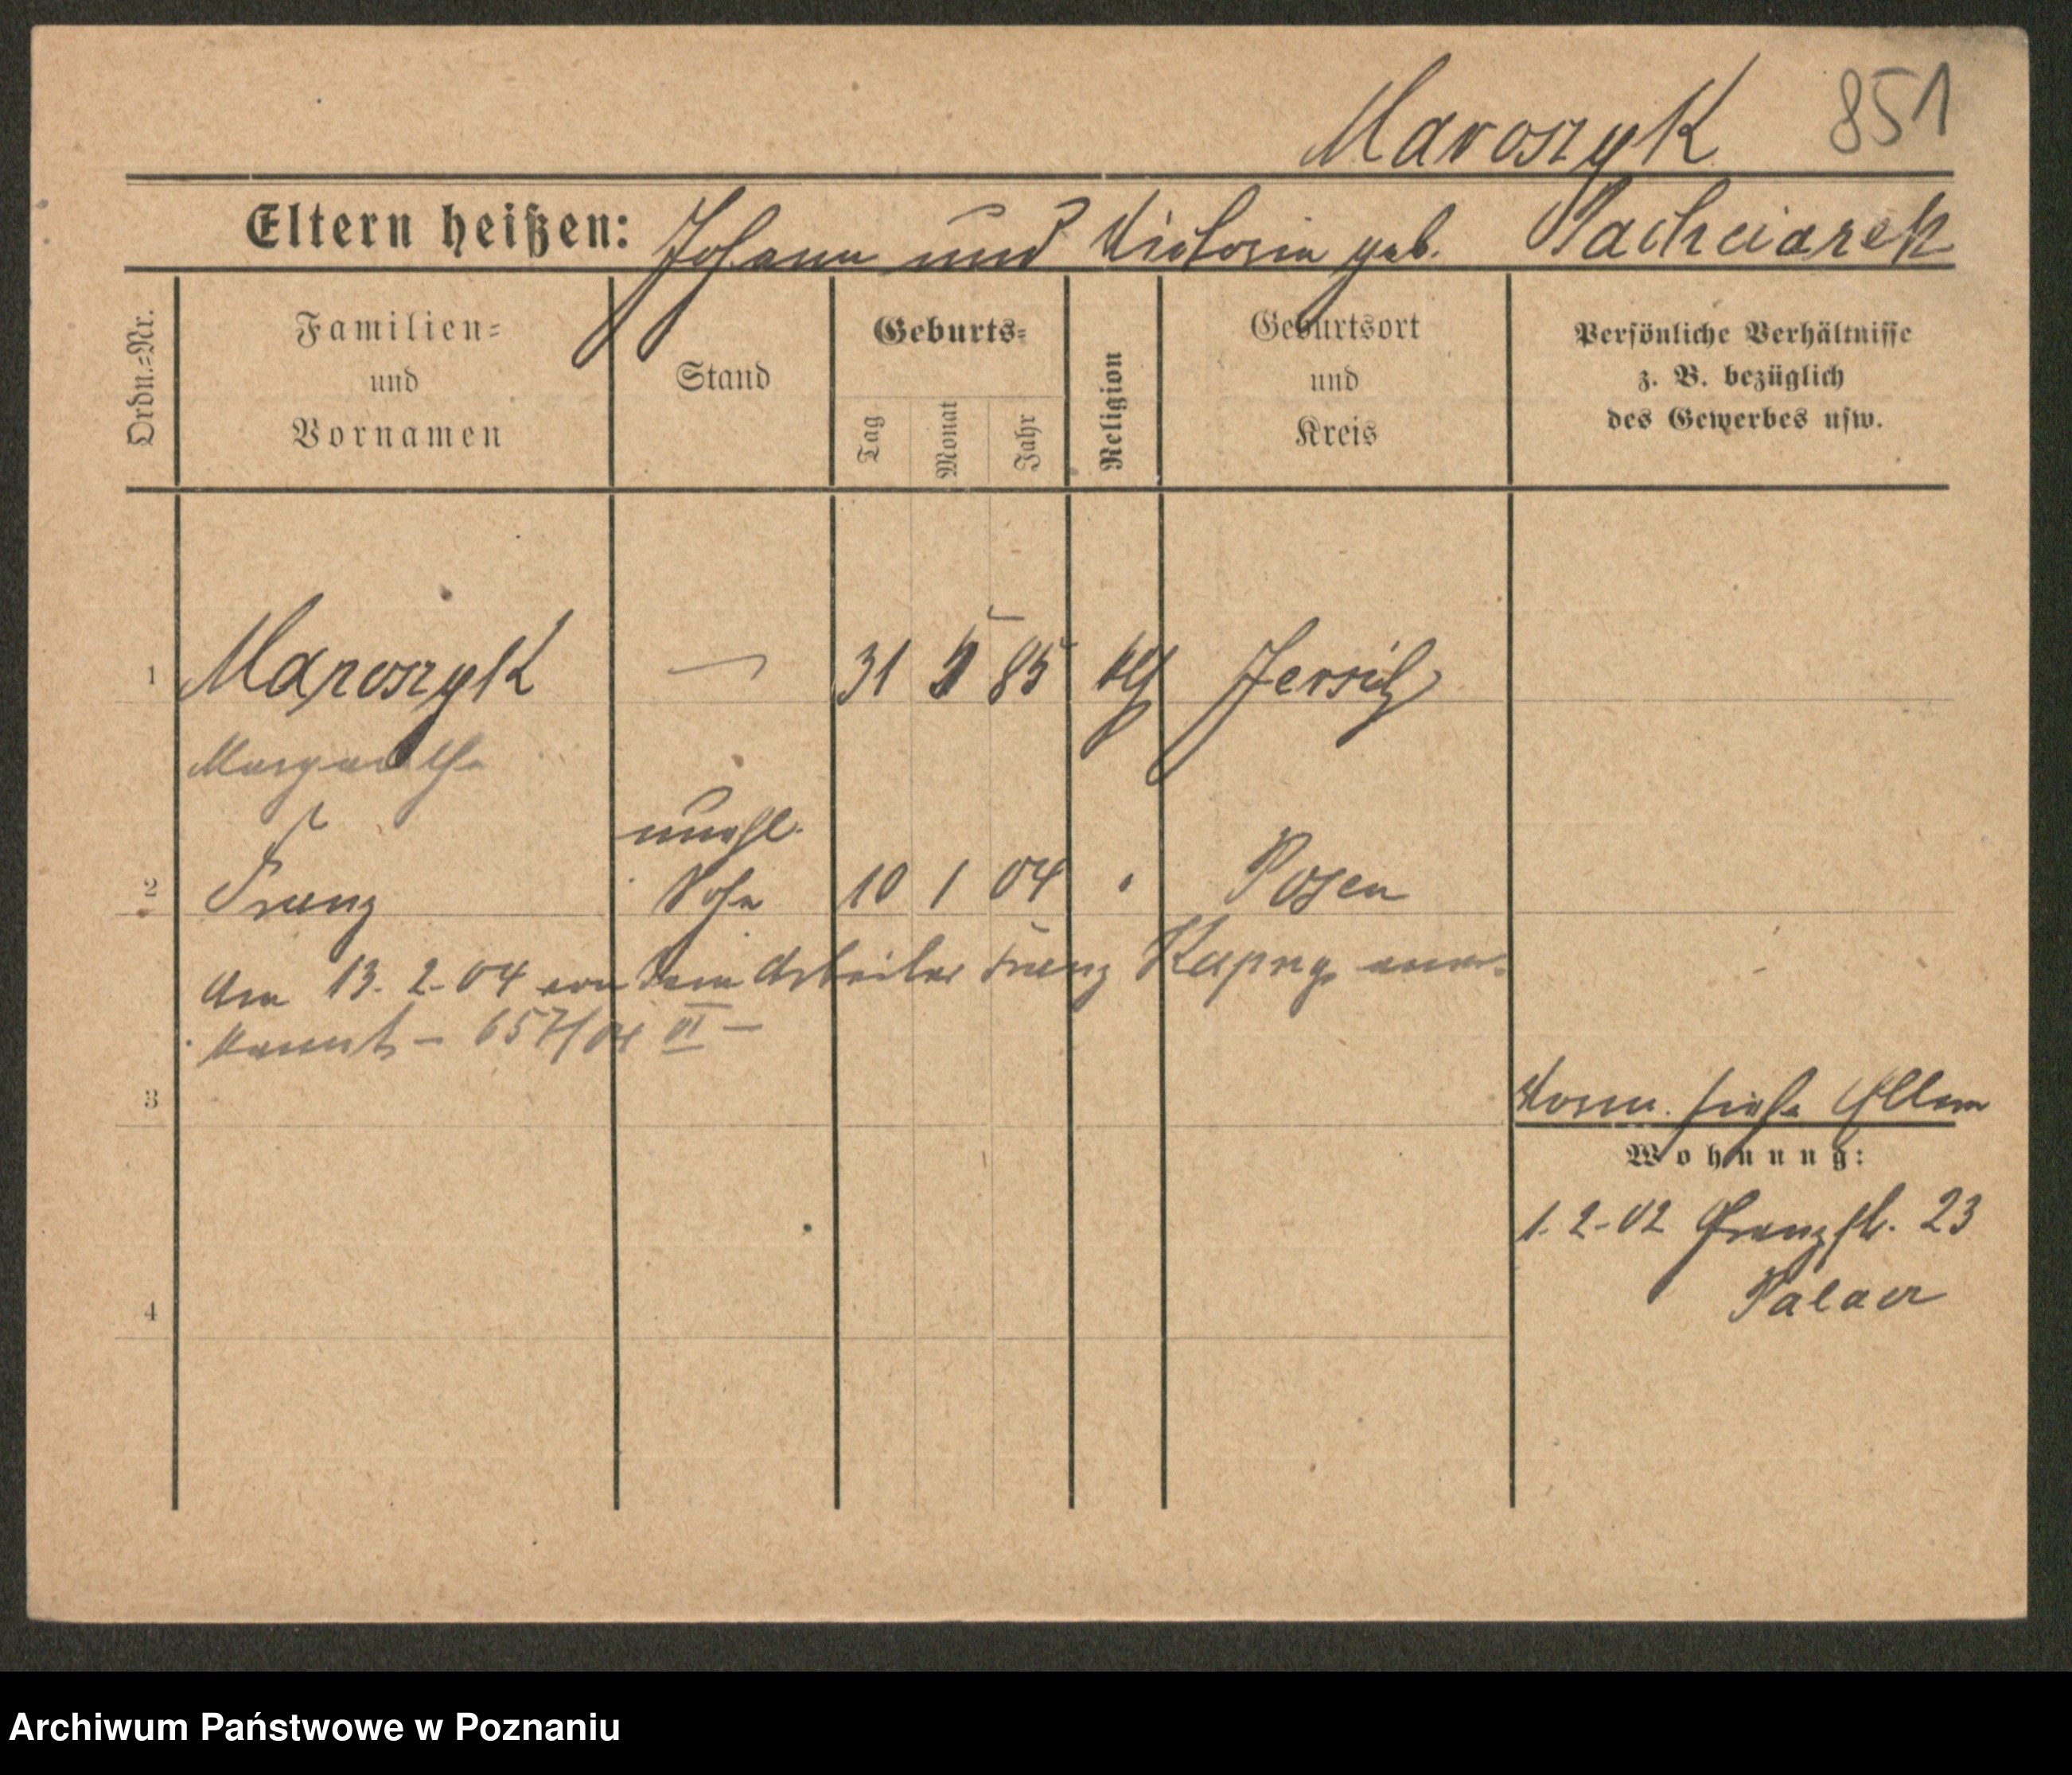 Maroszyk 851
Eltern heißen: Johann und Victoria geb. Pachciarek
Ordn.=Nr.
Familien=
und
Vornamen
Stand
Geburts=
Tag
Monat
Jahr
Religion
Geburtsort
und
Kreis
Persönliche Verhältnisse
z. B. bezüglich
des Gewerbes usw.
1 Maroszyk — 31 85 kth Jersitz
Margarethe
unehl.
2 Franz Sohn 10 1 04 " Posen
Am 13. 2. 04 von dem Arbeiter Franz aner-
kannt – 657/04 VI –
3
Vorm. siehe Eltern
Wohnung:
1. 2. 02 Grenzstr. 23
4
Archiwum Państwowe w Poznaniu